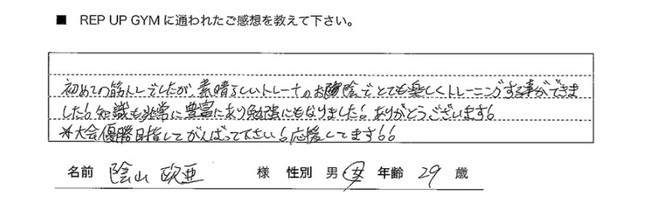 ■ REP UP GYMに通われたご感想を教えて下さい。
初めての筋トレでしたが、素晴らしいトレーナーのお陰でとても楽しくトレーニングする事ができま
した!知識も非常に豊富にあり勉強にもなりました!ありがとうございます!
*大会優勝目指してがんばって下さい!応援してます!!
名前 陰山 欧亜 様 性別 男・女 年齢 29 歳